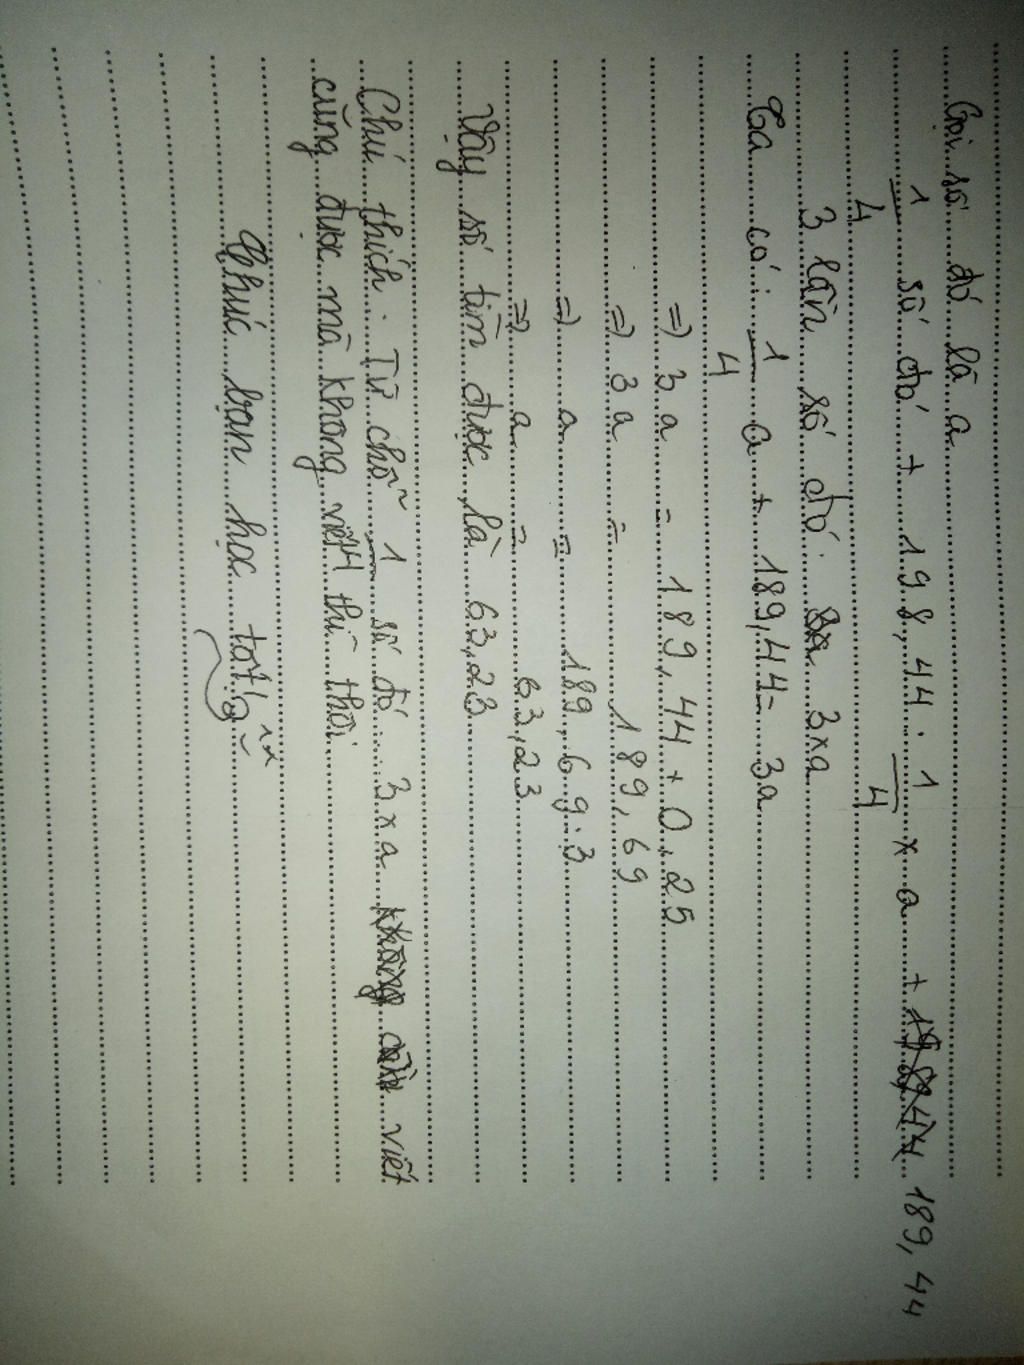 Gọi số đó là a
1/4 số đó + 198,44 : 1/4 x a + 189,44
3 lần số đó : 3xa
Ta có : 1/4 a + 189,44 = 3a
=> 3a = 189,44 + 0,25
=> 3a = 189,69
=> a = 189,69 : 3
=> a = 63,23
Vậy số tìm được là 63,23
Chú thích : Từ chỗ 1/4 số đó ... 3 x a viết
cũng được mà không viết thì thôi.
Chúc bạn học tốt!